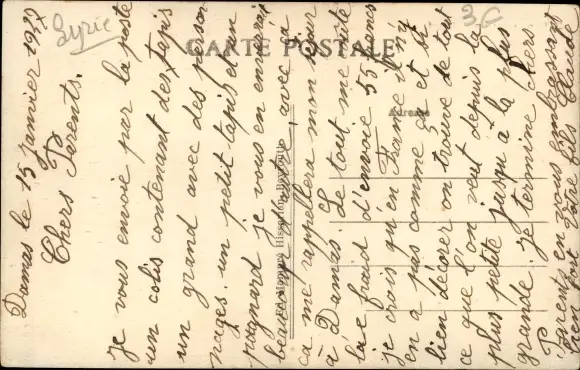 Syrie
3€
CARTE POSTALE
Adresse
Damas le 15 Janvier 1929
Chers Parents.
Je vous envoie par la poste
un colis contenant des tapis
un grand avec des person
nages. un petit tapis et un
poignard je vous en enverrai
beaucoup
ça me rappellera mon séjour
à Damas. Le tout me coûte
frais d'envoie 55 francs
je crois qu'en France il n'y
en a pas comme ça et si
bien décorer on trouve de tout
ce que l'on veut depuis la
plus petite jusqu'à la plus
grande. Je termine Chers
Parents en vous embrassant
bien fort Votre fils Claude